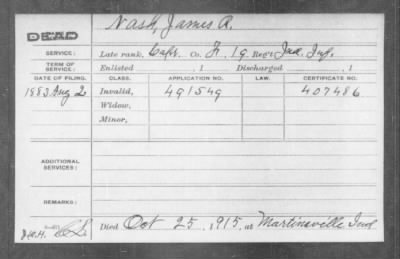 Nash, James A.
DEAD
SERVICE: Late rank, Capt. Co. K, 19 Reg't Ind. Inf.
TERM OF SERVICE: Enlisted , 1 Discharged , 1
DATE OF FILING. CLASS. APPLICATION NO. LAW. CERTIFICATE NO.
1883 Aug 2 Invalid, 491549 407486
Widow,
Minor,
ADDITIONAL SERVICES:
REMARKS:
Died Oct 25, 1915, at Martinsville Ind